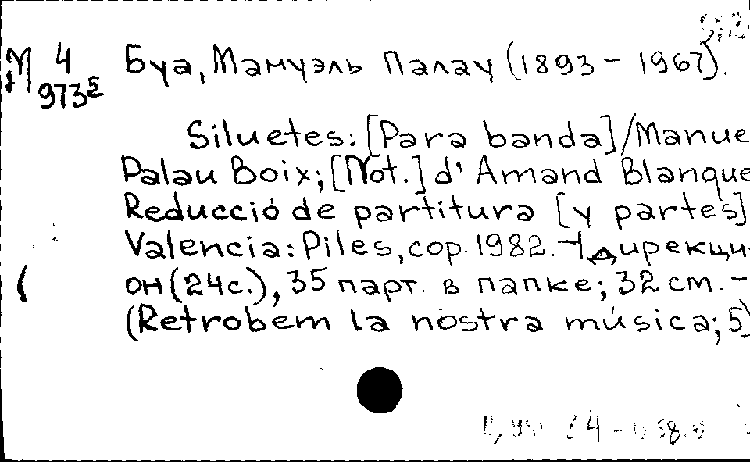 М 4 Буа, Мануэль Палау (1893 – 1967).
973⁵
Siluetes: [Para banda] / Manue
Palau Boix; [Not.] d' Amand Blanque
Reducció de partitura [y partes]
Valencia: Piles, cop. 1982. – 1 дирекци
он (24с.), 35 парт. в папке; 32 cm. –
(Retrobem la nostra música; 5)